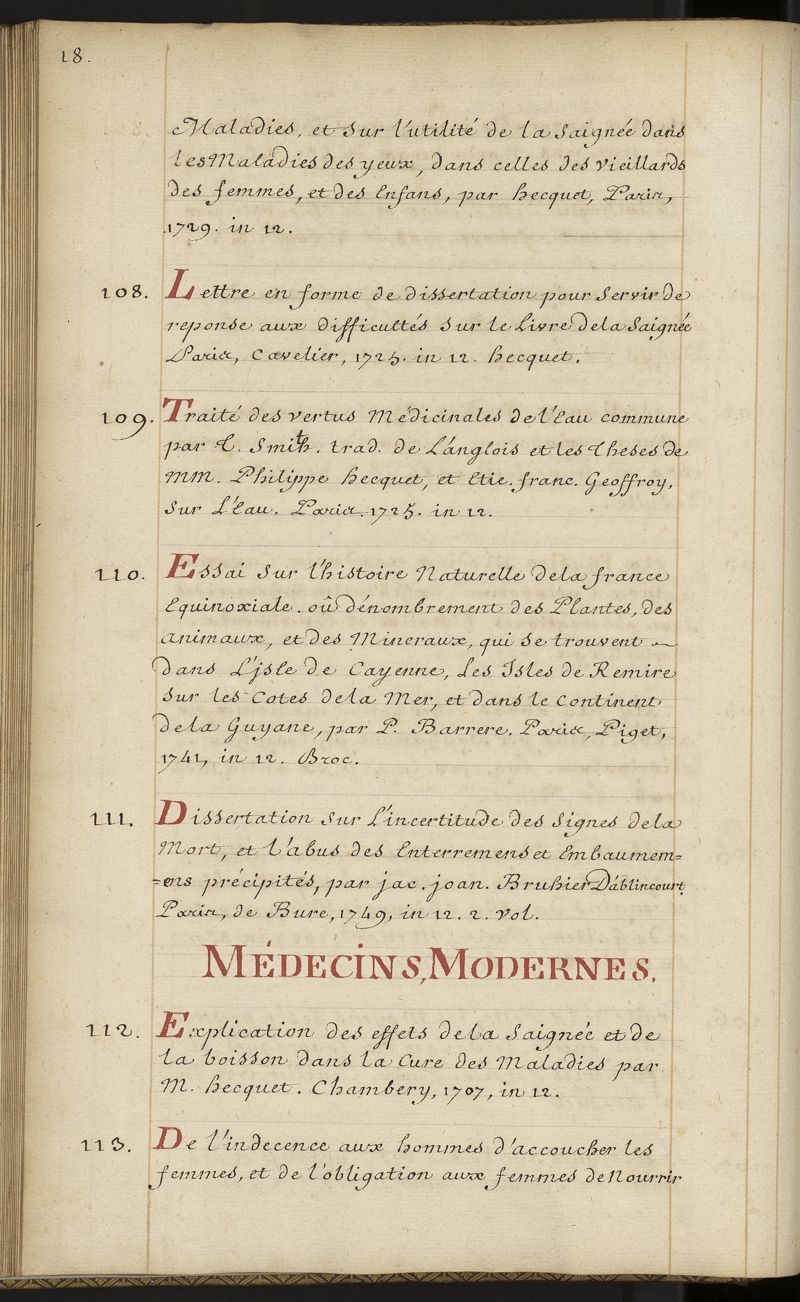 18.
Maladies, et sur l'utilité de la Saignée dans
les Maladies des yeux, dans celles des vieillards
des femmes, et des Enfans, par hecquet, Paris,
1729. in 12.
108. Lettre en forme de dissertation pour servir de
reponse aux difficultés sur le Livre de la Saignée
Paris, Cavelier, 1725. in 12. hecquet.
109. Traité des vertus Médicinales de l'Eau commune
par t. Smith. trad. de L'anglois et les Theses de
MM. Philippe hecquet, et Etie. franc. Geoffroy,
sur L'Eau. Paris. 1725. in 12.
110. Essai sur l'histoire Naturelle de la france
Equinoxiale. oû dénombrement des Plantes, des
animaux, et des Mineraux, qui se trouvent
dans L'jsle de Cayenne, Les Isles de Remire
sur les Cotes de la Mer, et dans le continent
de la Guyane, par P. Barrere. Paris, Piget,
1741, in 12. Broc.
111. Dissertation sur L'incertitude des Signes de la
Mort, et l'abus des Enterremens et Embaumem=
=ens précipités, par jac. joan. Bruhier Dáblincourt
Paris, de Bure, 1749, in 12. 2. vol.
MÉDECINS, MODERNES.
112. Explication des effets de la Saignée et de
la boisson dans la Cure des Maladies par
M. hecquet. Chambery, 1707, in 12.
113. De l'indecence aux hommes d'accoucher les
femmes, et de l'obligation aux femmes de Nourrir